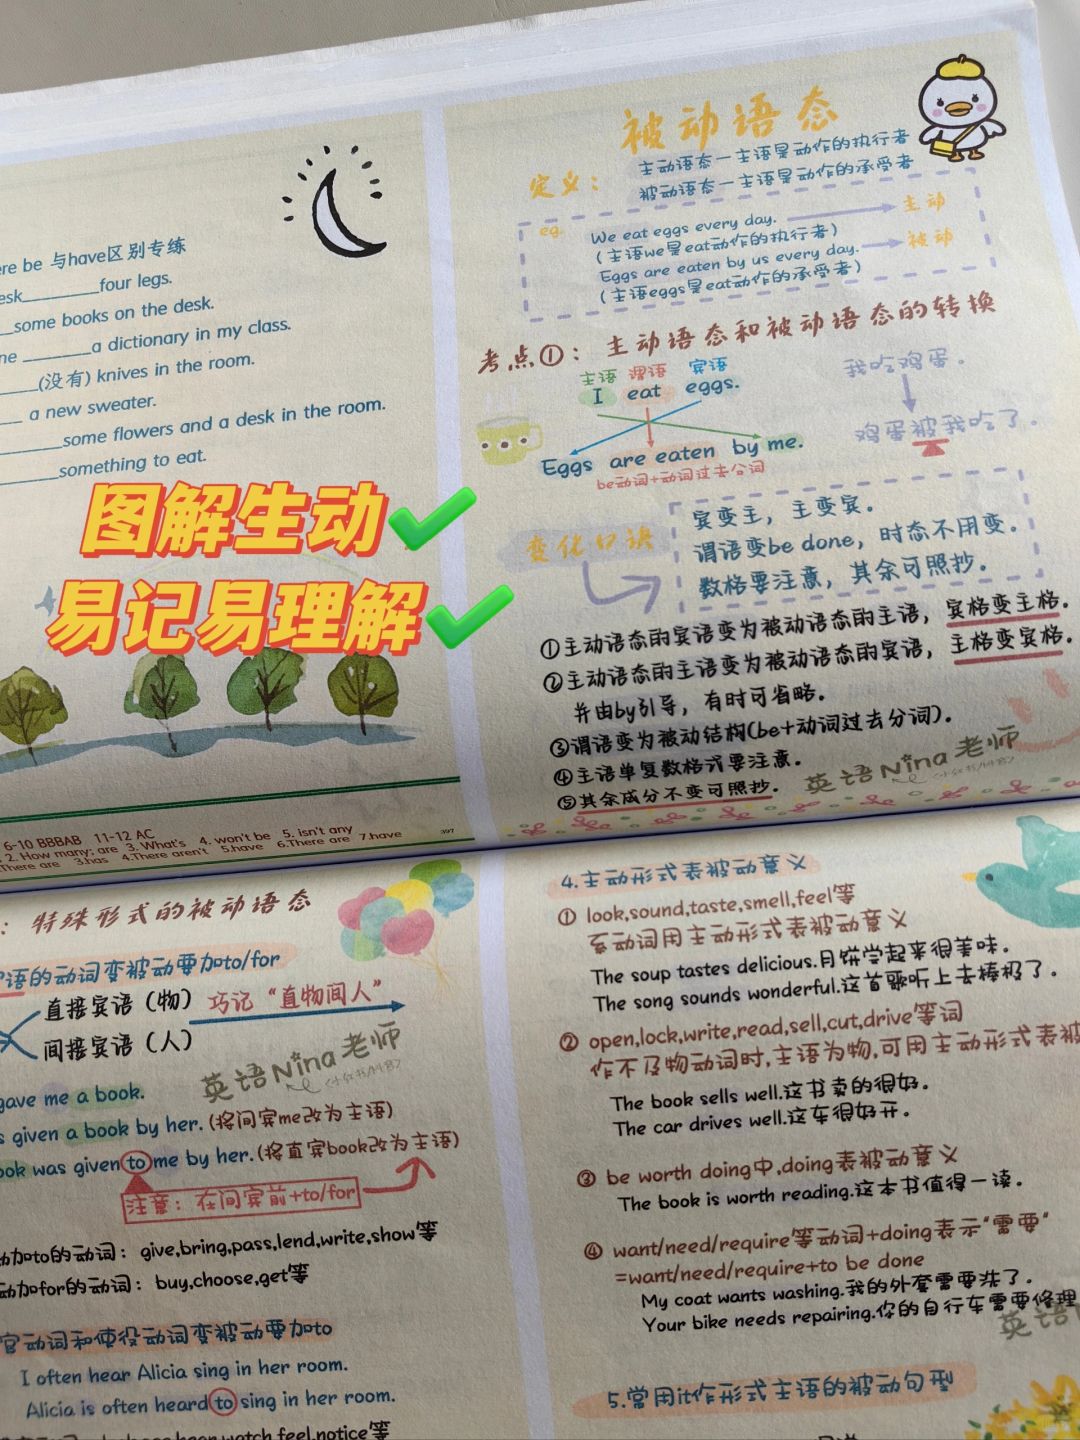 ere be 与have区别专练
esk________four legs.
__some books on the desk.
ne _______a dictionary in my class.
_____(没有) knives in the room.
__ a new sweater.
_______some flowers and a desk in the room.
_______something to eat.
图解生动
易记易理解
6-10 BBBAB 11-12 AC
2. How many; are 3. What's 4. won't be 5. isn't any
There are 3.has 4.There aren't 5.have 6.There are 7.have
397
被动语态
定义：
主动语态—主语是动作的执行者
被动语态—主语是动作的承受者
eg. We eat eggs every day. 主动
(主语we是eat动作的执行者)
Eggs are eaten by us every day. 被动
(主语eggs是eat动作的承受者)
考点①：主动语态和被动语态的转换
主语 谓语 宾语
I eat eggs.
我吃鸡蛋.
Eggs are eaten by me.
鸡蛋被我吃了.
be动词+动词过去分词
变化口诀
宾变主，主变宾.
谓语变be done，时态不用变.
数格要注意，其余可照抄.
①主动语态的宾语变为被动语态的主语，宾格变主格.
②主动语态的主语变为被动语态的宾语，主格变宾格.
并由by引导，有时可省略.
③谓语变为被动结构(be+动词过去分词).
④主语单复数格式要注意.
⑤其余成分不变可照抄.
英语Nina老师
：特殊形式的被动语态
语的动词变被动要加to/for
直接宾语（物） 巧记“直物间人”
间接宾语（人）
英语Nina老师
gave me a book.
s given a book by her.(将间宾me改为主语)
ook was given to me by her.(将直宾book改为主语)
注意：在间宾前+to/for
加to的动词：give,bring,pass,lend,write,show等
动加for的动词：buy,choose,get等
官动词和使役动词变被动要加to
I often hear Alicia sing in her room.
Alicia is often heard to sing in her room.
hear,watch,feel,notice等
4.主动形式表被动意义
① look,sound,taste,smell,feel等
系动词用主动形式表被动意义
The soup tastes delicious.月饼尝起来很美味.
The song sounds wonderful.这首歌听上去棒极了.
② open,lock,write,read,sell,cut,drive等词
作不及物动词时,主语为物,可用主动形式表被
The book sells well.这书卖的很好.
The car drives well.这车很好开.
③ be worth doing中,doing表被动意义
The book is worth reading.这本书值得一读.
④ want/need/require等动词+doing表示“需要”
=want/need/require+to be done
My coat wants washing.我的外套需要洗了.
Your bike needs repairing.你的自行车需要修理
英语
5.常用it作形式主语的被动句型